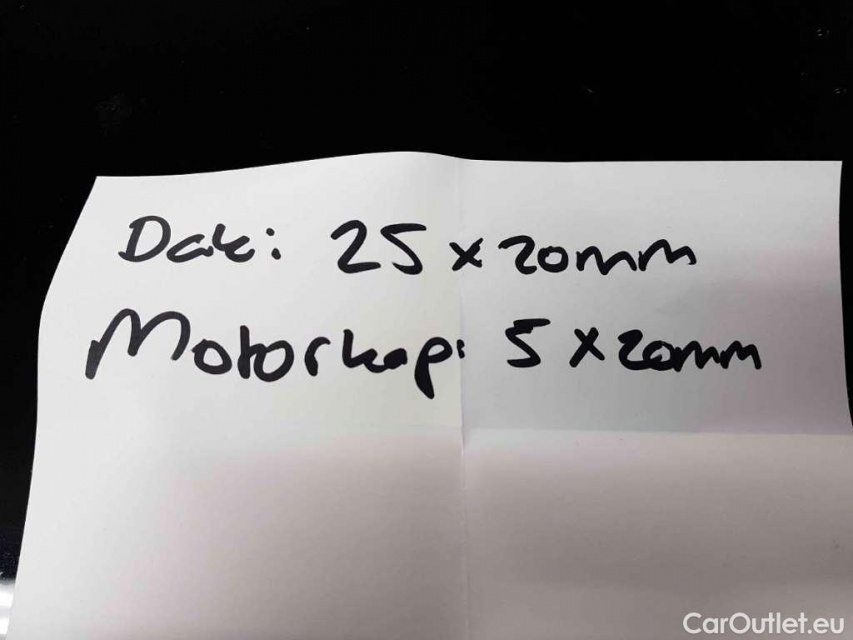 Dak: 25 x 20mm
Motorkap: 5 x 20mm
CarOutlet.eu